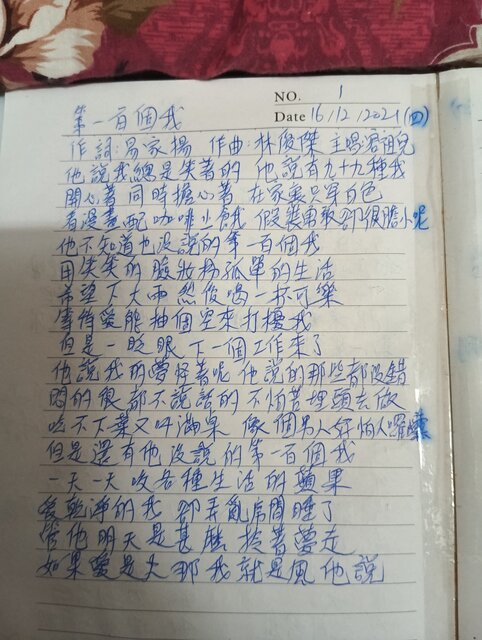 NO. 1
第一百個我
Date 16/12/2021(四)
作詞:易家揚 作曲:林俊傑 主唱:
他說我總是笑著的 他說有九十九種我
開心著 同時擔心著 在家裏只穿白色
看漫畫配咖啡小餓 假裝勇敢卻很膽小呢
他不知道也沒說的第一百個我
用笑笑的臉妝扮孤單的生活
希望下大雨然後喝一杯可樂
等待愛能抽個空來打擾我
但是一眨眼下一個工作來了
他說我的夢怪著呢 他說的那些都沒錯
悶的很都不說話的 不怕苦埋頭去做
吃不下菜又叫滿桌 像個男人好怕人囉嗦
但是還有他沒說的第一百個我
一天一天咬各種生活的蘋果
愛乾淨的我 卻弄亂房間睡了
管他明天是甚麼 接著夢走
如果愛是火那我就是風他說